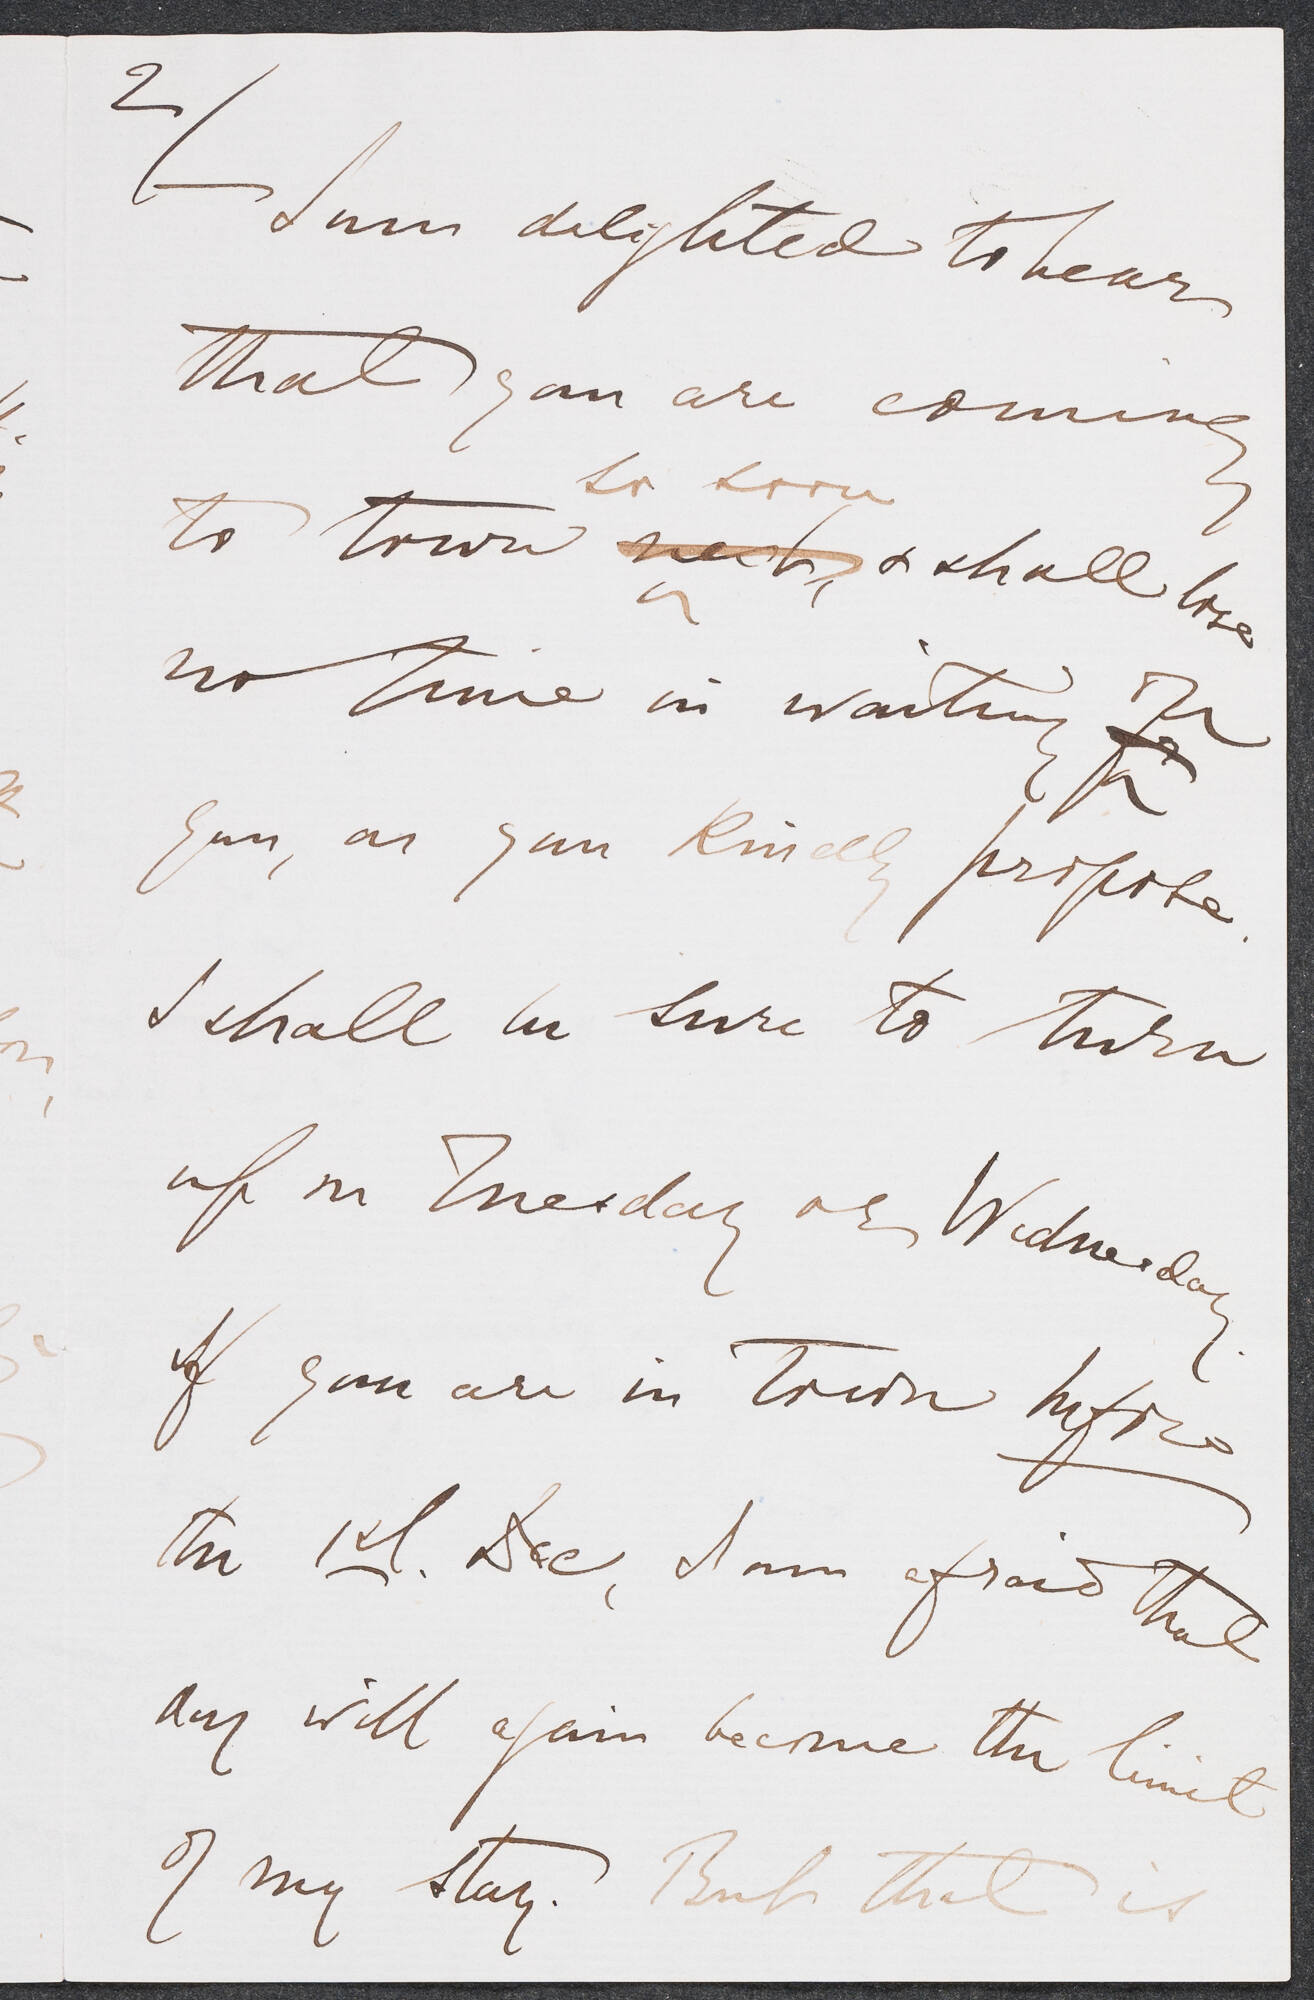 2/
I am delighted to hear
that you are coming
so soon
to town & shall lose
no time in waiting on
you, as you kindly propose.
I shall be sure to turn
up on Tuesday or Wednesday.
If you are in town before
the 1st. Dec, I am afraid that
day will again become the limit
of my stay. But that is